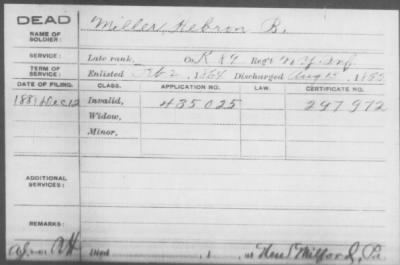 DEAD
NAME OF SOLDIER: Miller, Hebron B.
SERVICE: Late rank, Co. K 89 Reg't N.Y. Inf.
TERM OF SERVICE: Enlisted Feb 2, 1864 Discharged Aug, 1865
DATE OF FILING. CLASS. APPLICATION NO. LAW. CERTIFICATE NO.
1881 Dec 12 Invalid, 435025 297972
Widow,
Minor,
ADDITIONAL SERVICES:
REMARKS:
Died , 1 , at New Milford, Pa